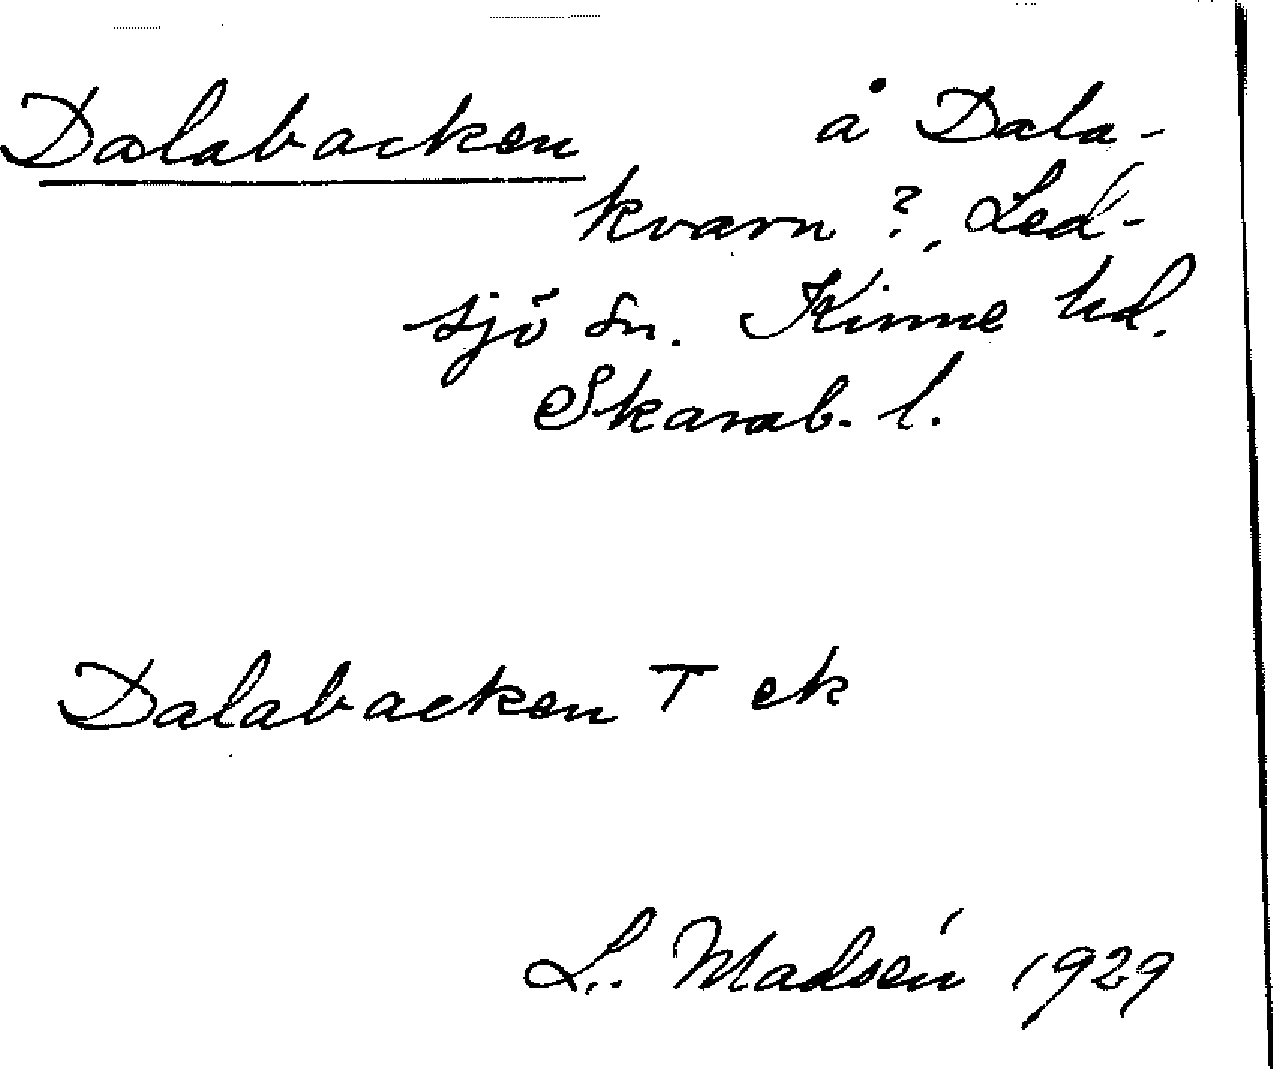 Dalabacken å Dala-
kvarn ?, Led-
sjö sn. Kinne hd.
Skarab. l.
Dalabacken T ek
L. Madsén 1929